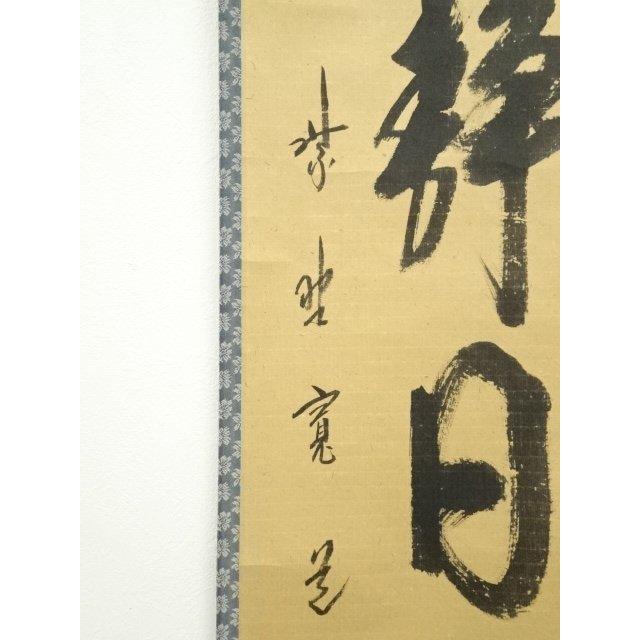 静日
紫野寛道